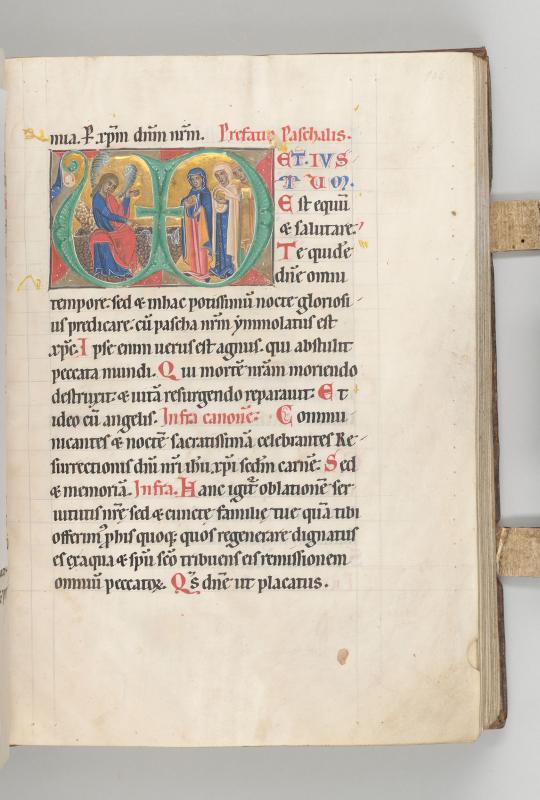 mia. P. xp̄m dn̄m nr̄m. Prefatio Paschalis.
ET. IVS
TUM.
Est equū
& salutare.
Te quidē
dn̄e omni
tempore. sed & in hac potissimū nocte gloriosi
us predicare. cū pascha nr̄m ymmolatus est
xp̄c. Ipse enim uerus est agnus. qui abstulit
peccata mundi. Qui mortē nr̄am moriendo
destruxit. & uitā resurgendo reparauit. Et
ideo cū angelis. Infra canonē. Commu
nicantes & noctē sacratissimā celebrantes Re
surrectionis dn̄i nr̄i ih̄u xp̄i scdm̄ carnē. Sed
& memoriā. Infra. Hanc igit̄ oblationē ser
uitutis nr̄e sed & cuncte familie tue quā tibi
offerim᾿ p his quoq; quos regenerare dignatus
es ex aqua & sp̄u scō tribuens eis remissionem
omniū peccatoꝝ. Qs̄ dn̄e ut placatus.